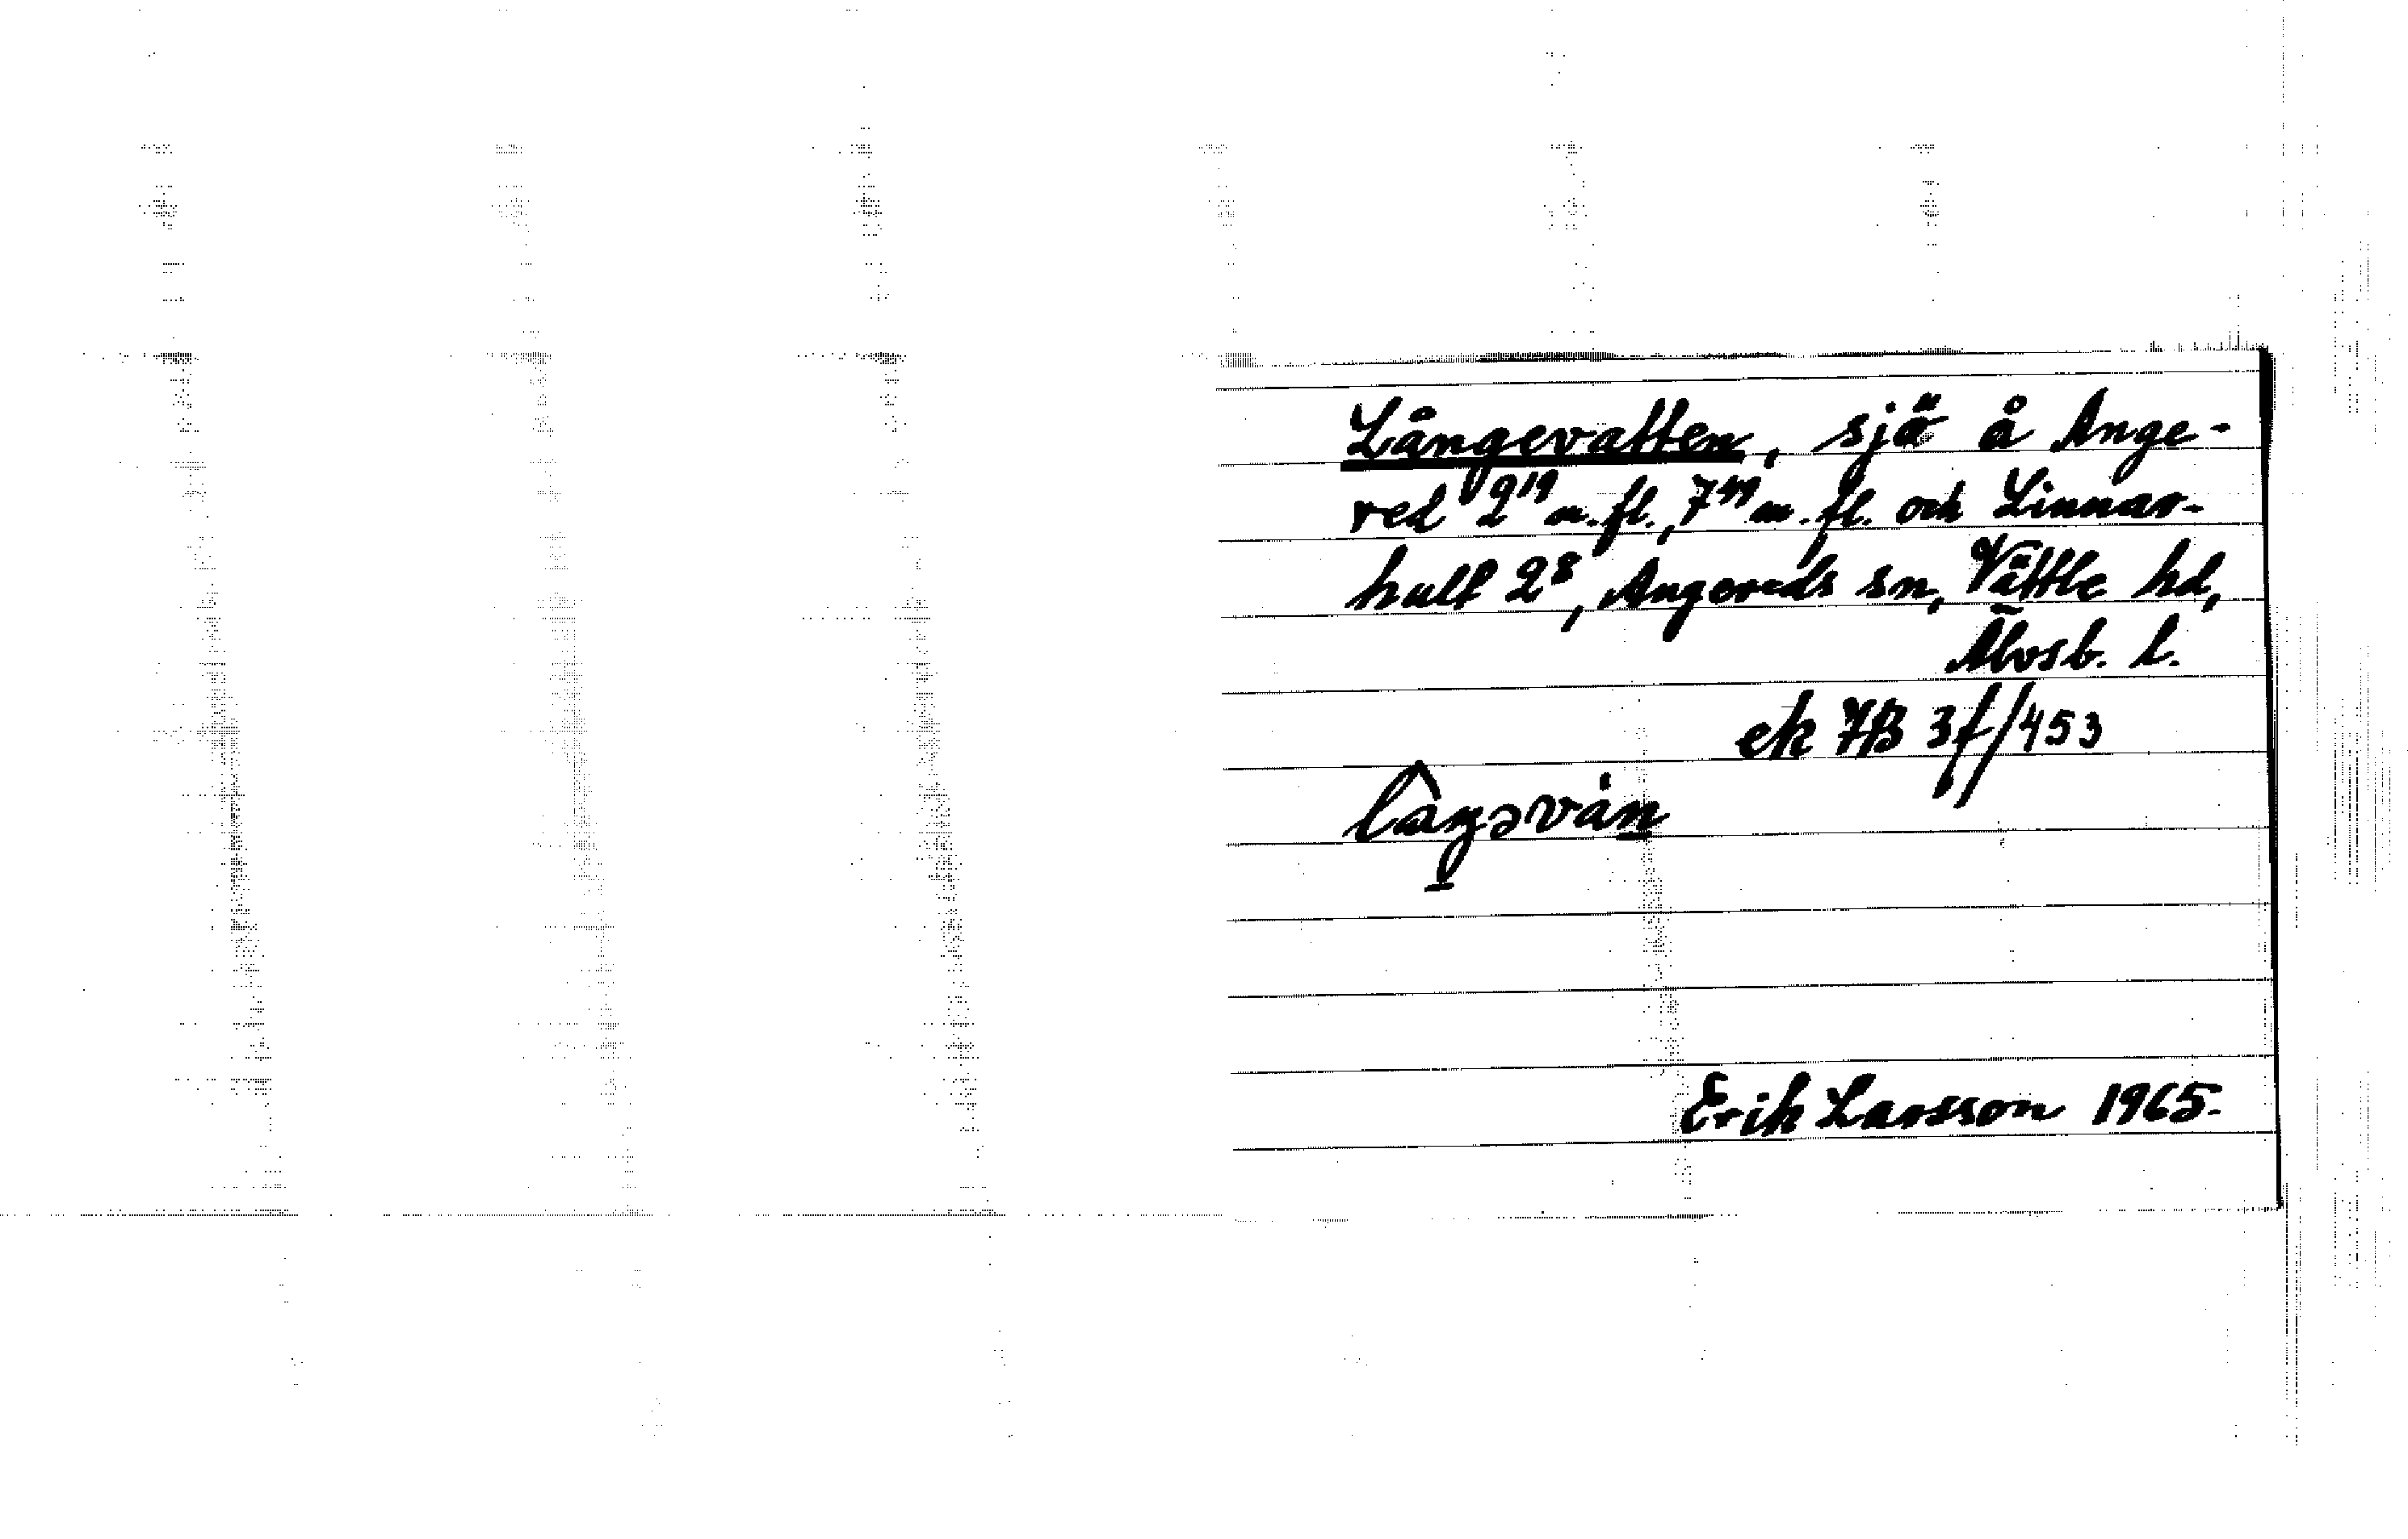 Långevatten, sjö å Ange-
red 2¹⁹ m.fl., 7⁴⁹ m.fl. och Linnar-
hult 2⁸, Angereds sn, Vättle hd,
Älvsb. l.
ek 7B 3f/453
Erik Larsson 1965.